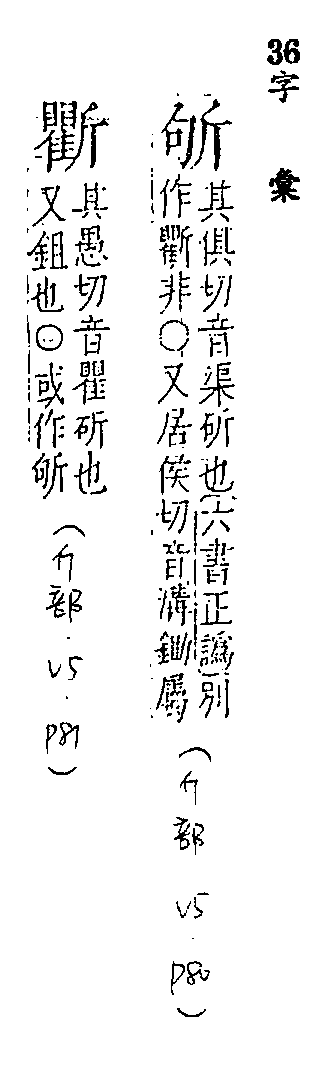 36字彙
斪
其俱切音渠斫也六書正譌別
作斸非○又居侯切音溝鋤屬
(斤部.V5.P80)
其愚切音瞿斫也
又鉏也○或作斪
(斤部.V5.P81)